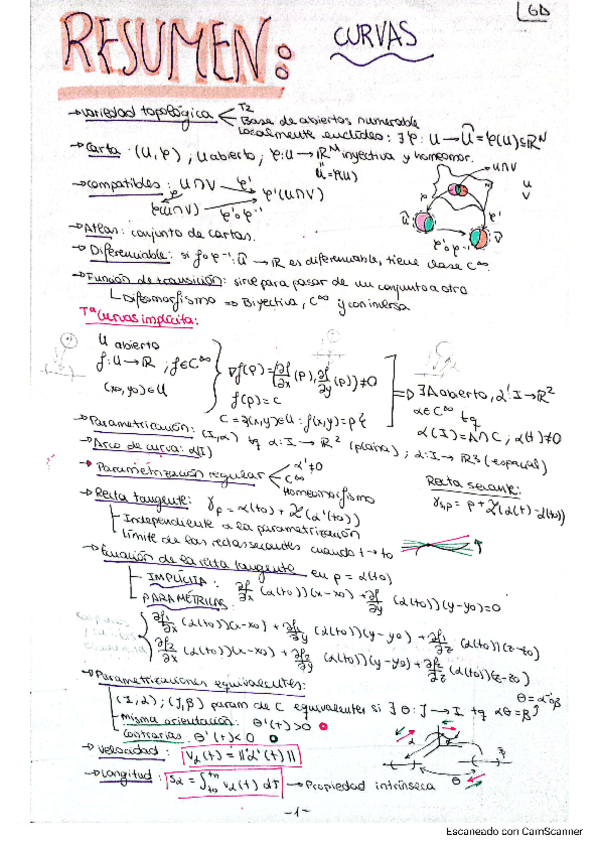 GD
RESUMEN: CURVAS
→ Variedad topológica < T2
Base de abiertos numerable
Localmente euclídeo: ∃ φ: U → Û = φ(U) ⊆ ℝᴺ
→ Carta: (U, φ), U abierto, φ: U → ℝᴺ inyectiva y homeomor.
Û = φ(U)
→ Compatibles: U∩V φ' φ'(U∩V)
φ
φ(U∩V) φ'∘φ⁻¹
U∩V
U
V
φ
Û
φ'∘φ⁻¹
V̂
→ Atlas: conjunto de cartas.
→ Diferenciable: si f∘φ⁻¹: Û → ℝ es diferenciable, tiene clase C∞
→ Función de transición: sirve para pasar de un conjunto a otro
↳ Difeomorfismo ⇒ Biyectiva, C∞ y con inversa
Tª Curvas implícita:
U abierto
f: U → ℝ, f ∈ C∞
(x₀, y₀) ∈ U
∇f(p) = (∂f/∂x (p), ∂f/∂y (p)) ≠ 0
f(p) = c
C = {(x,y) ∈ U : f(x,y) = p}
⇒ ∃ A abierto, α: I → ℝ²
α ∈ C∞ tq
α(I) = A∩C, α'(t) ≠ 0
→ Parametrización: (I, α) tq α: I → ℝ² (plana); α: I → ℝ³ (espacial)
→ Arco de curva: α(I)
→ Parametrización regular < α' ≠ 0
C∞
Homeomorfismo
Recta secante:
r_{t,p} = p + λ(α(t) - α(t₀))
→ Recta tangente: r_p = α(t₀) + λ(α'(t₀))
Independiente a la parametrización
Límite de las rectas secantes cuando t → t₀
→ Ecuación de la recta tangente en p = α(t₀)
IMPLÍCITA: ∂f/∂x (α(t₀))(x-x₀) + ∂f/∂y (α(t₀))(y-y₀) = 0
PARAMÉTRICAS:
∂f₁/∂x (α(t₀))(x-x₀) + ∂f₁/∂y (α(t₀))(y-y₀) + ∂f₁/∂z (α(t₀))(z-z₀)
∂f₂/∂x (α(t₀))(x-x₀) + ∂f₂/∂y (α(t₀))(y-y₀) + ∂f₂/∂z (α(t₀))(z-z₀)
→ Parametrizaciones equivalentes:
(I, α); (J, β) param de C equivalentes si ∃ θ: J → I tq αθ = β
θ = α⁻¹β
misma orientación: θ'(t) > 0
Contrarias: θ'(t) < 0
→ Velocidad: v_α(t) = ||α'(t)||
→ Longitud: s_α = ∫ v_α(t) dt → Propiedad intrínseca
α
β
θ
-1-
Escaneado con CamScanner